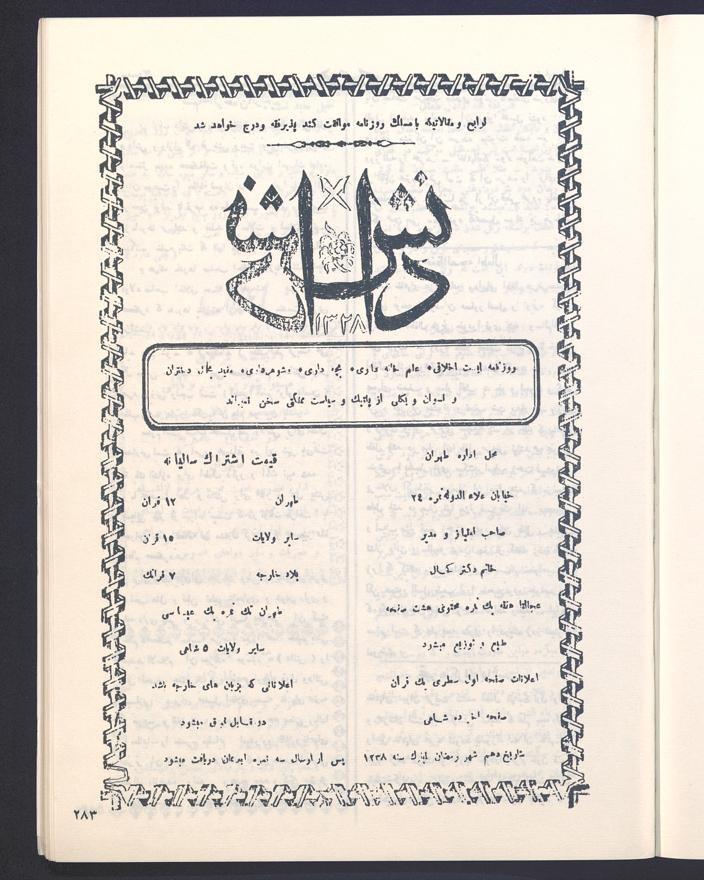 لوایح و مقالاتیکه با مسلک روزنامه موافقت کند پذیرفته و درج خواهد شد
دانش
۱۳۲۸
روزنامه ایست اخلاقی، علم خانه داری، بچه داری، شوهرداری، مفید بحال دختران
و نسوان و بکلی از پلتیک و سیاست مملکتی سخن نمیراند
محل اداره طهران
خیابان علاء الدوله نمره ۲۴
صاحب امتیاز و مدیر
خانم دکتر کحال
عجالتا هفته یک نمره محتوی هشت صفحه
طبع و توزیع میشود
اعلانات صفحه اول سطری یک قران
صفحه آخر ده شاهی
بتاریخ دهم شهر رمضان المبارک سنه ۱۳۲۸
قیمت اشتراک سالیانه
طهران ۱۲ قران
سایر ولایات ۱۵ قران
بلاد خارجه ۷ فرانک
طهران تک نمره یک عباسی
سایر ولایات ۵ شاهی
اعلاناتی که بزبان های خارجه باشد
دو مقابل فوق میشود
پس از ارسال سه نمره آبونمان دریافت میشود
۲۸۳